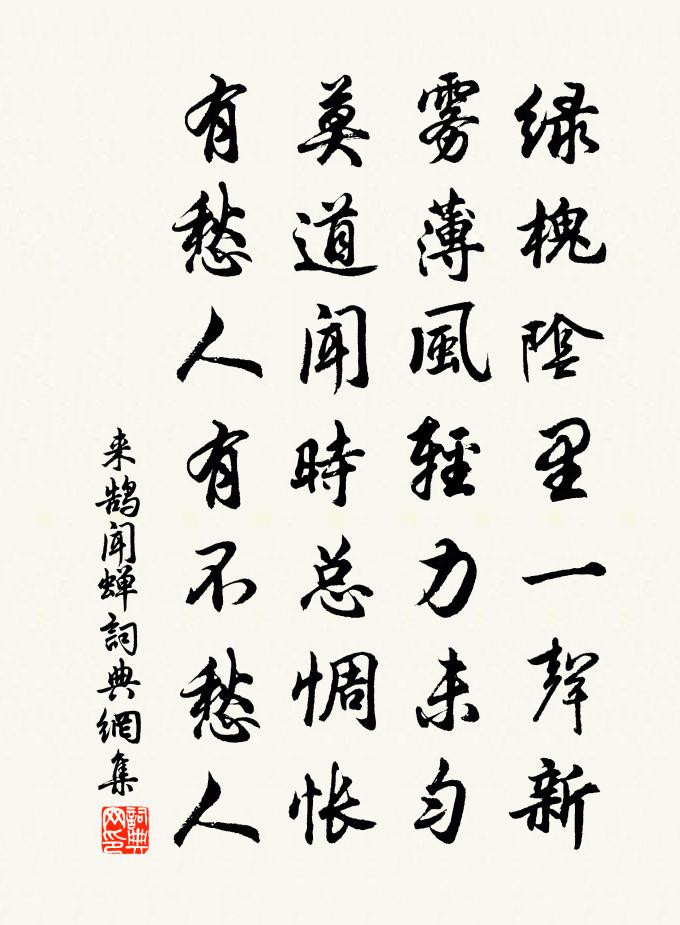 绿槐陰里一聲新
雾薄風輕力未匀
莫道闻時总惆怅
有愁人有不愁人
来鹄闻蝉詞典網集
詞典网印